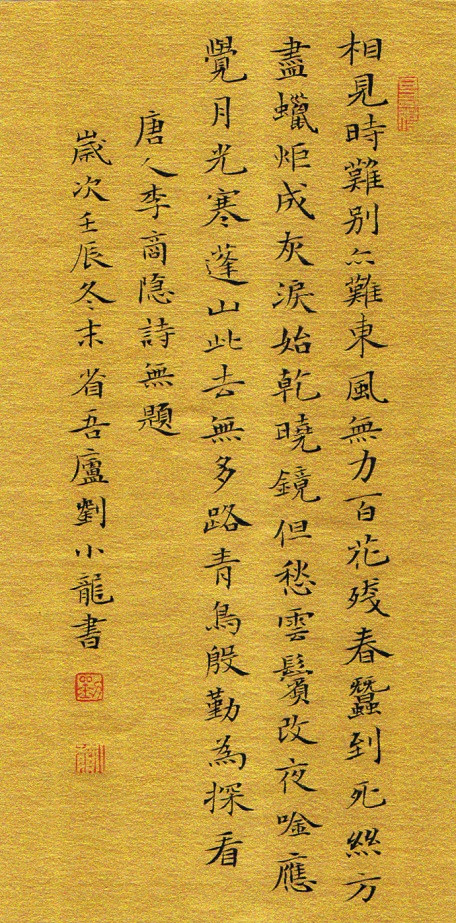 相見時難別亦難東風無力百花殘春蠶到死絲方
盡蠟炬成灰淚始乾曉鏡但愁雲鬢改夜吟應
覺月光寒蓬山此去無多路青鳥殷勤為探看
唐人李商隐詩無題
歲次壬辰冬末省吾廬劉小龍書